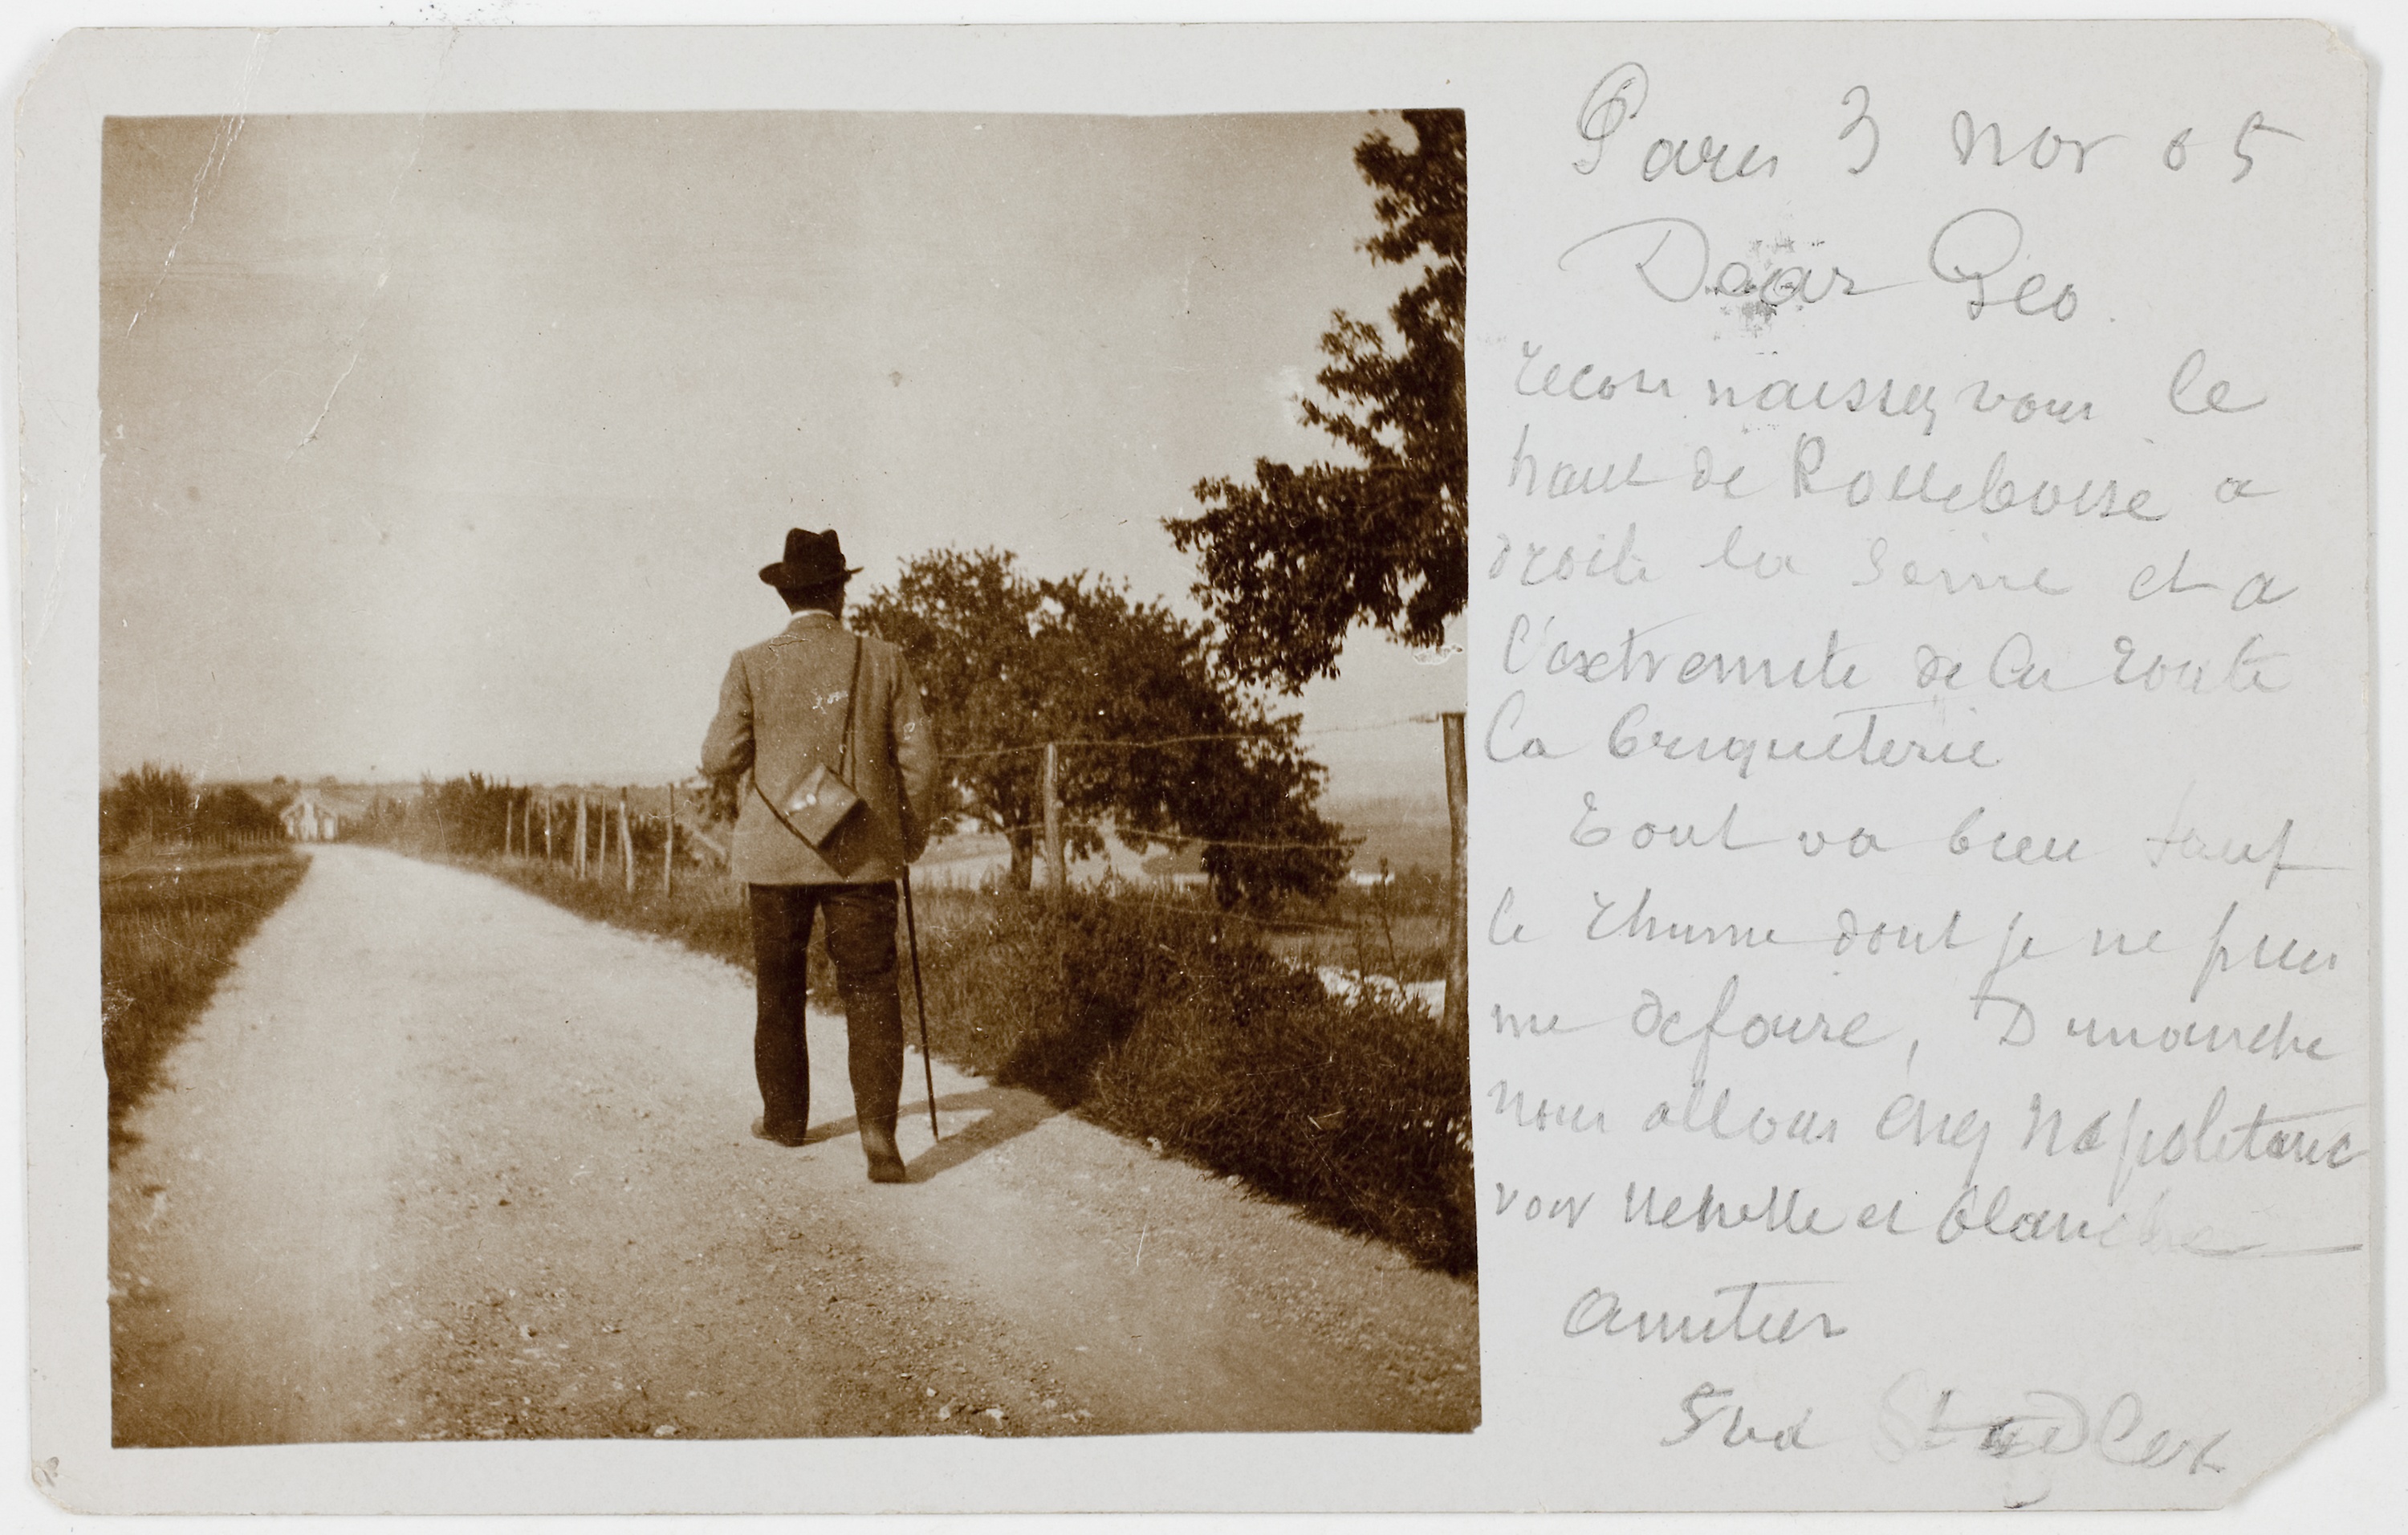 Paris 3 nov 05
Dear Geo.
reconnaissez vous le
haut de Rolleboise a
droite la Seine et a
l'extremite de la route
la briqueterie
Tout va bien sauf
le rhume dont je ne puis
me defaire, Dimanche
nous allons chez Napolitano
voir et blanche
Amities
Stadler